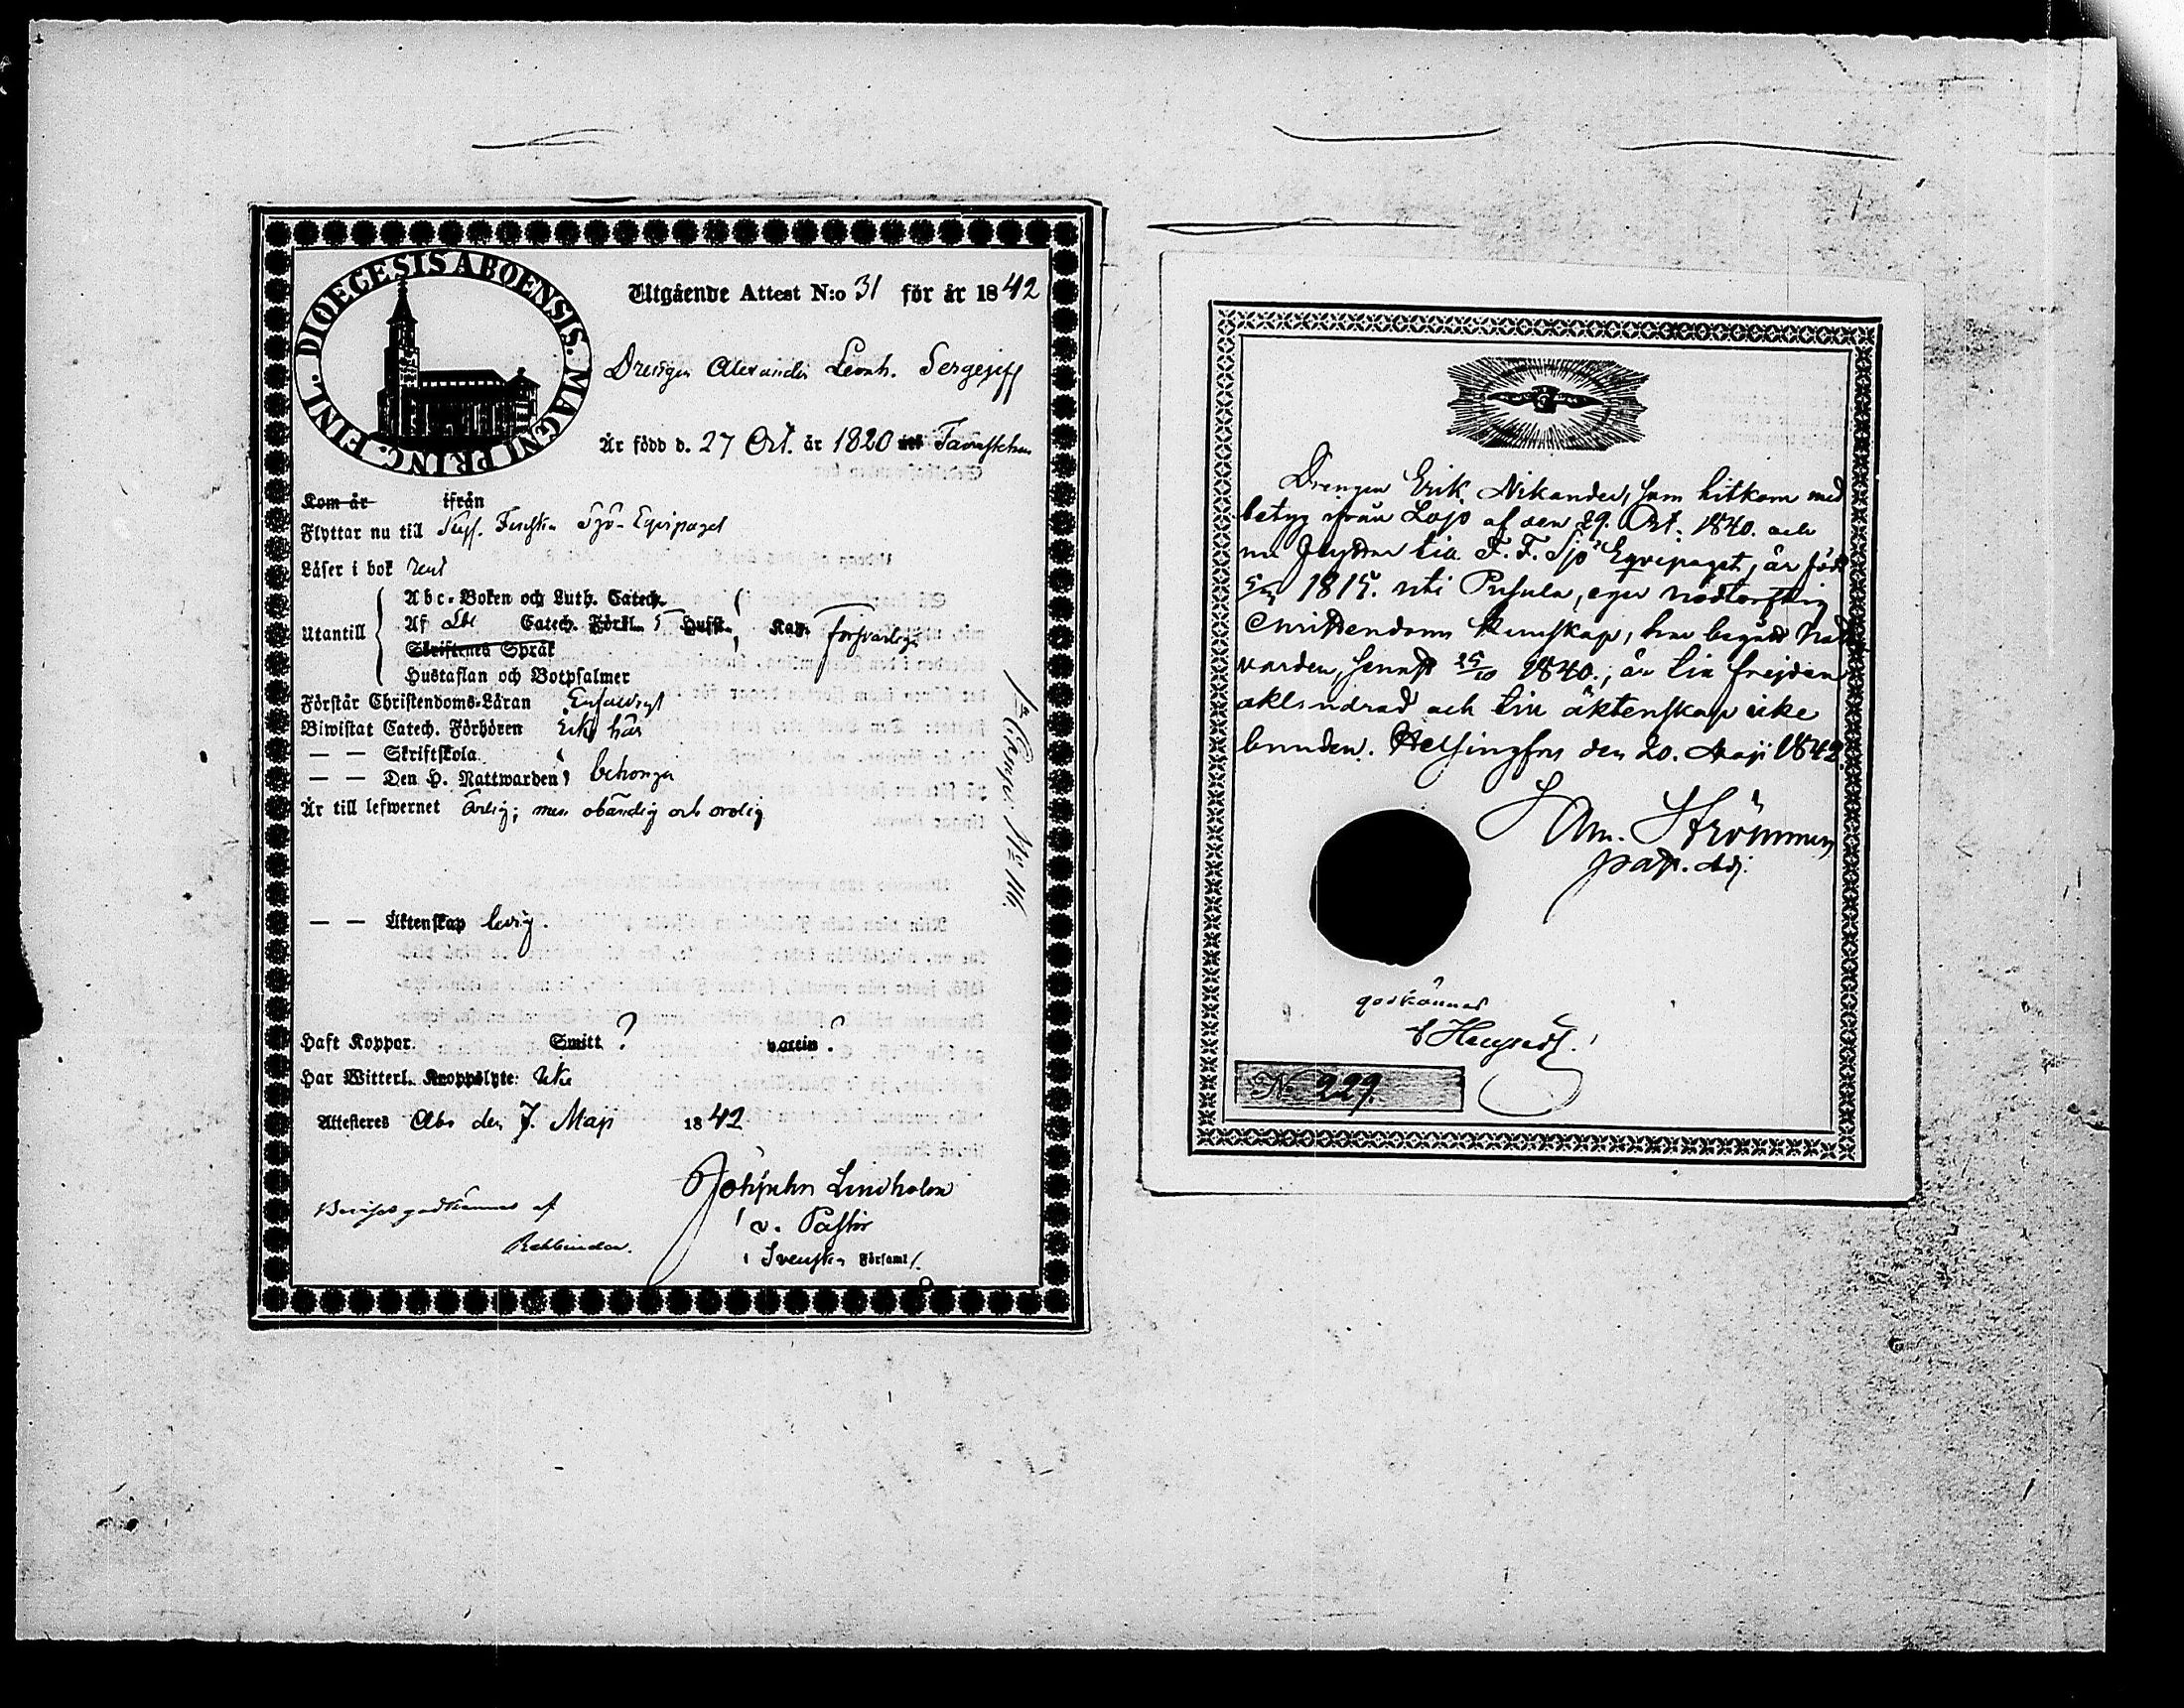 DIOECESIS ABOENSIS. MAGNI PRINC. FINL.
Utgående Attest N:o 31 för år 1842
Drengen Alexander Leonh. Sergejeff
Är född d. 27 Oct. år 1820 uti Tavastehus
Kom år ifrån
Flyttar nu till Kejs. Finska Sjö-Equipaget
Läser i bok rent
Utantill
Abc-Boken och Luth. Catech.
Af Catech. Förkl. 5 Hufst. Kap. försvarliga
Skriftenes Språk
Hustaflan och Botpsalmer
Förstår Christendoms-Läran Enfaldigt
Biwistat Catech. Förhören Icke här
— — Skriftskola
— — Den H. Nattwarden behörigen
Är till lefwernet ärlig; men obändig och orolig
1sta Comp. No 116.
— — Äktenskap ledig.
Haft Koppor. Smitt ? vaccin ?
Har Witterl. Kroppslyte: Icke
Attesteres Åbo den 7. Maji 1842
Joh: Lindholm
v. Pastor
i Svenska Församl.
Beviset godkännes af
Rehbinder.
Drengen Erik Nikander, som hitkom med
betyg ifrån Lojo af den 29. Oct. 1840. och
nu flyttar till F. F. Sjö Eqvipaget, är född
1815. uti Pusula, eger nödtorftig
Christendoms Kunskap, har begått Natt
varden, senast 25/10 1840., är till frejden
oklandrad och till äktenskap icke
bunden. Helsingfors den 20. Maji 1842.
Am. Strömmer
past. Adj.
godkännes
No 229.